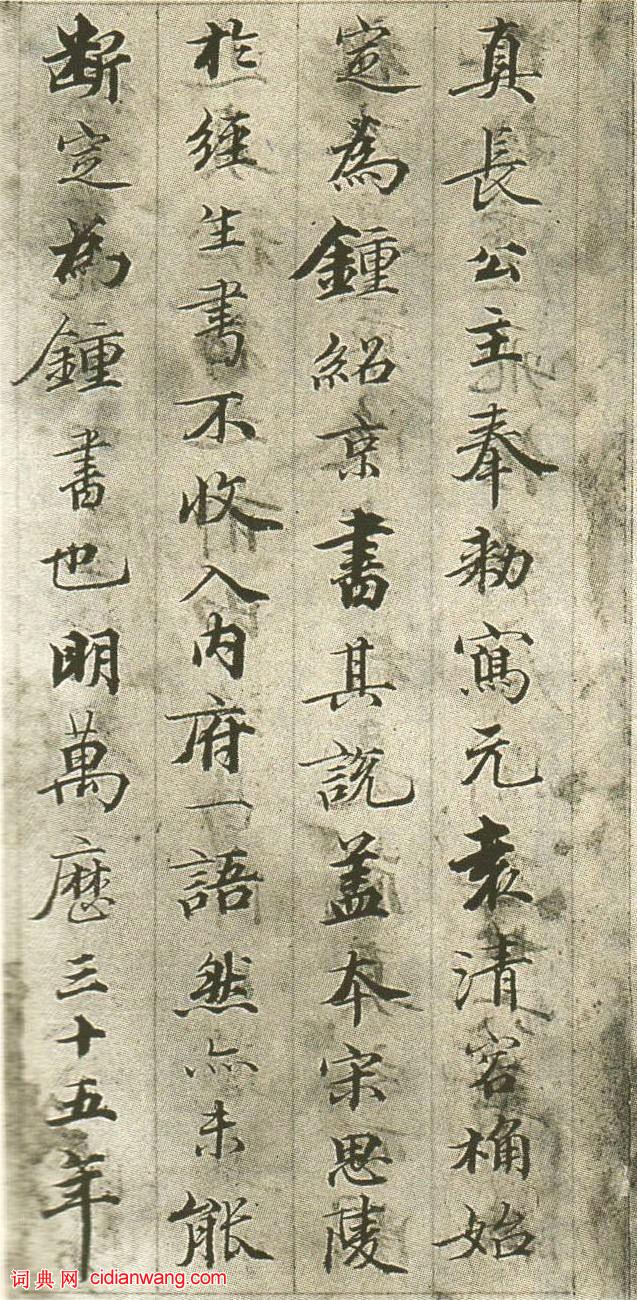 真長公主奉勅寫元袁清容桷始
定為鍾紹京書其說盖本宋思陵
於經生書不收入内府一語然亦未能
斷定為鍾書也明萬曆三十五年
词典网 cidianwang.com